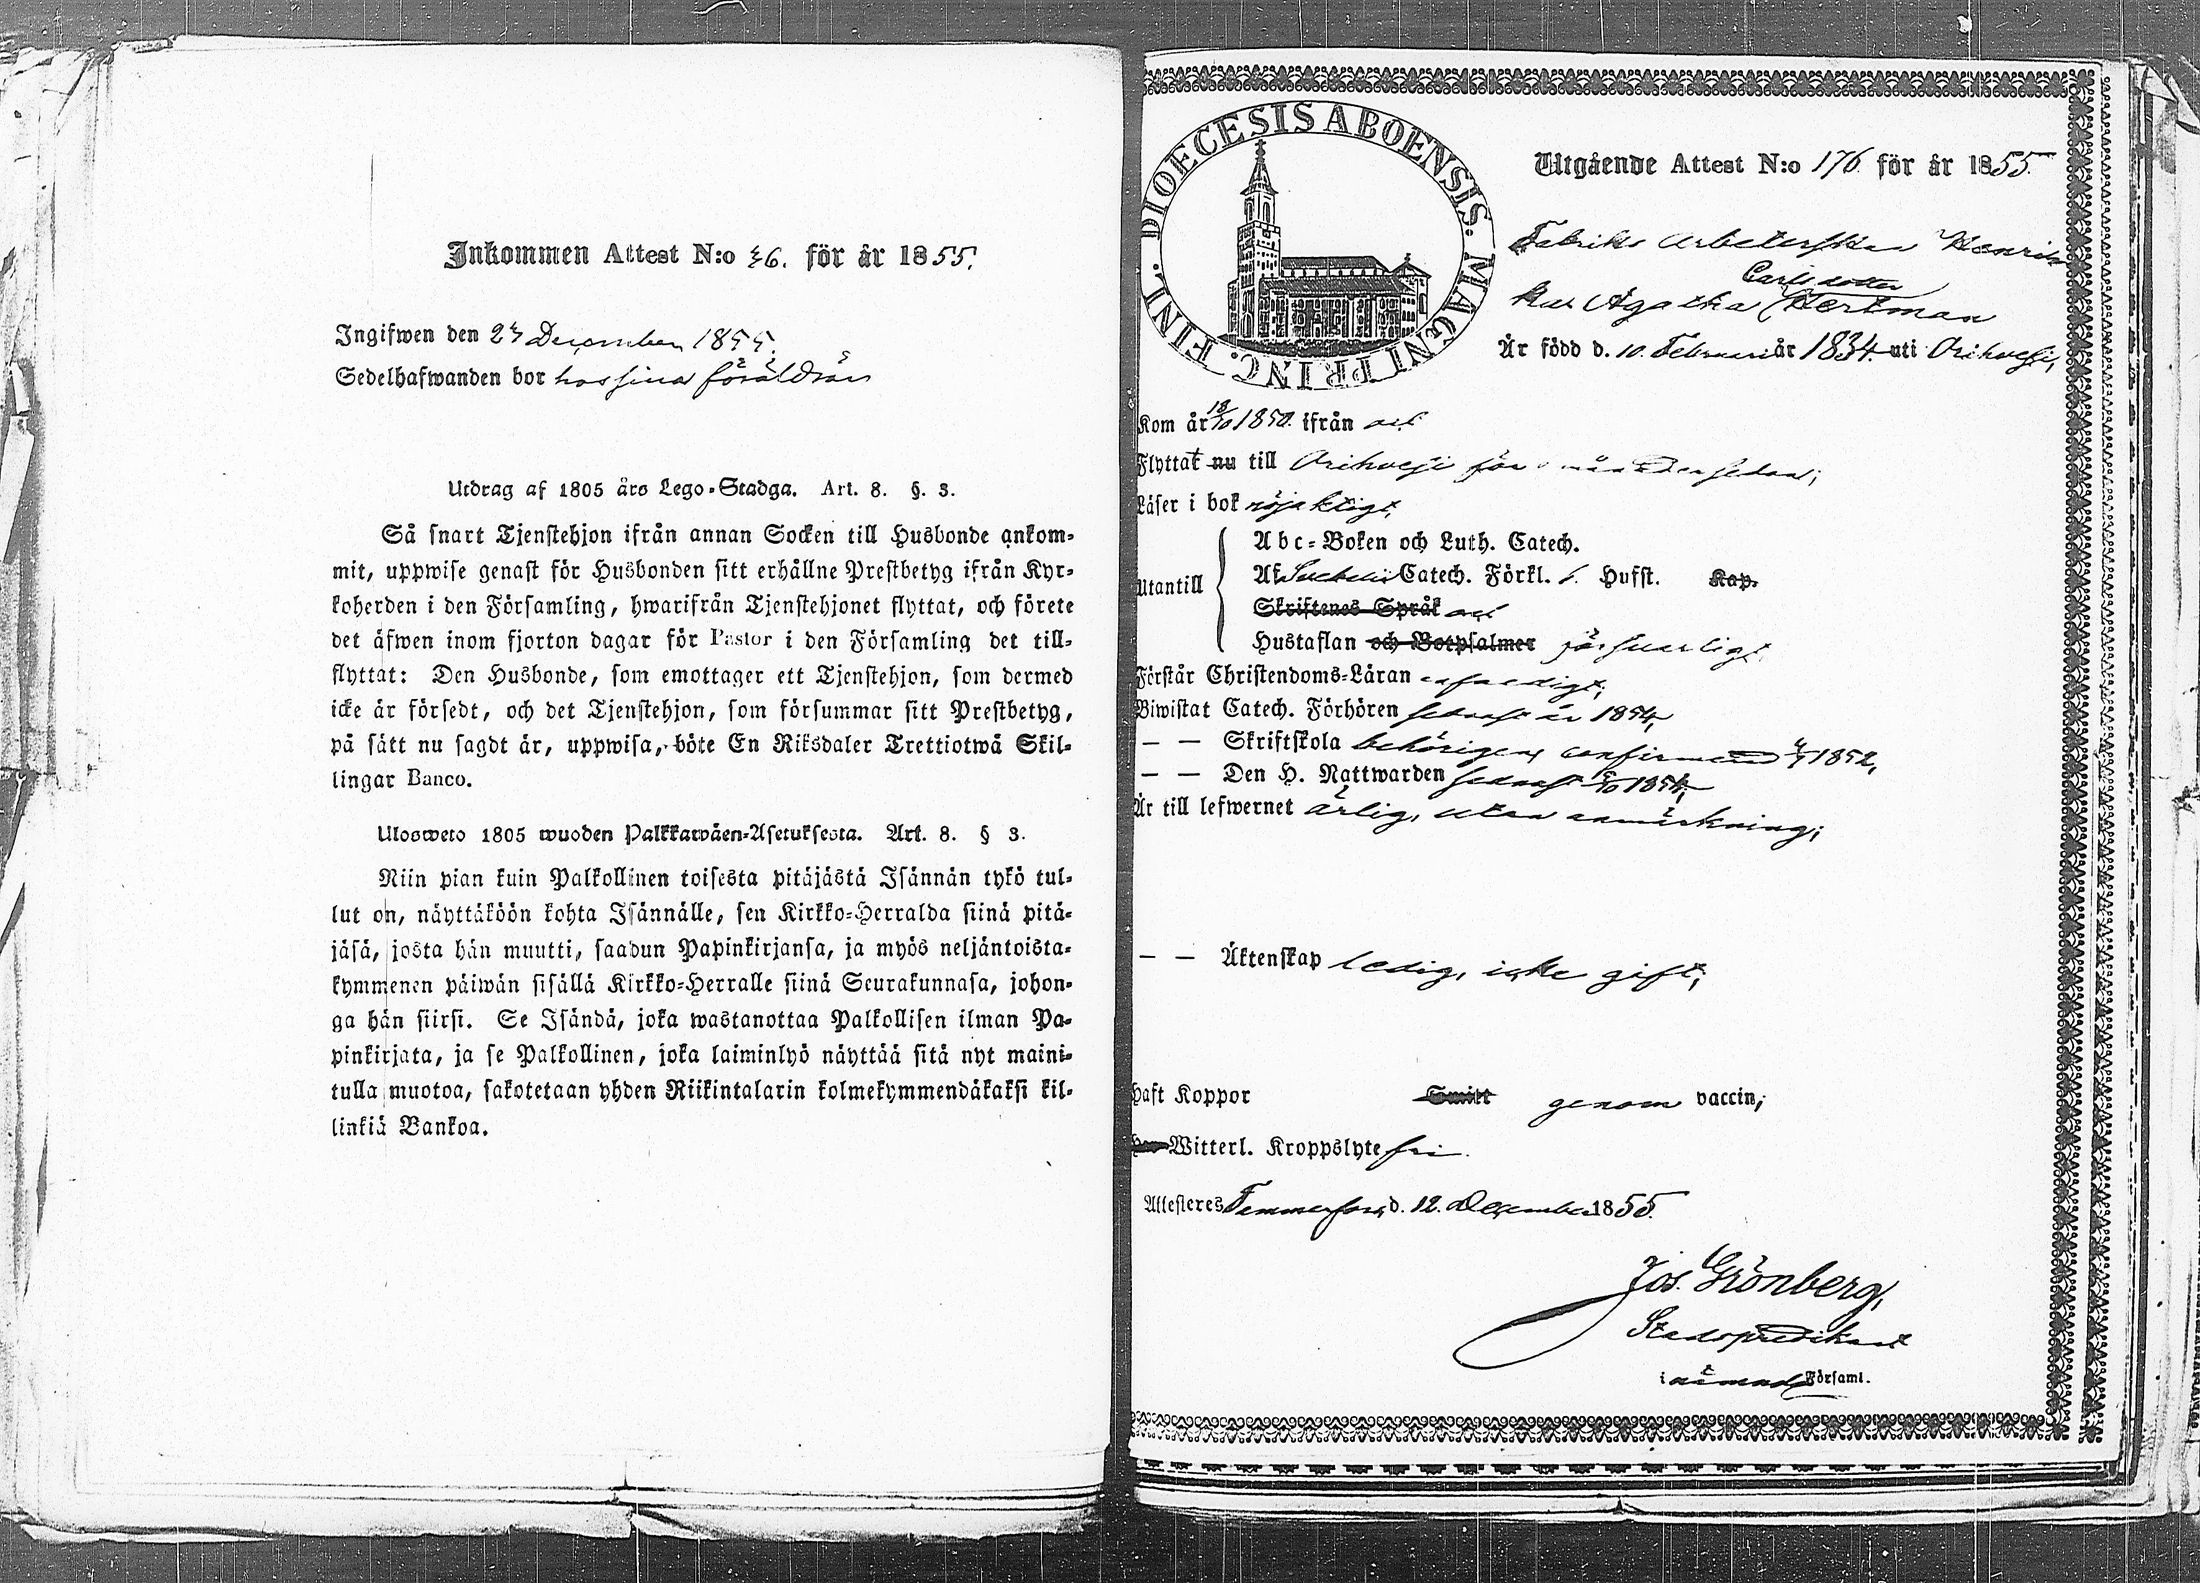 Inkommen Attest N:o 46. för år 1855.
Ingifwen den 27 December 1855.
Sedelhafwanden bor hos sina föräldrar
Utdrag af 1805 års Lego-Stadga. Art. 8. §. 3.
Så snart Tjenstehjon ifrån annan Socken till Husbonde ankom-
mit, uppwise genast för Husbonden sitt erhållne Prestbetyg ifrån Kyr-
koherden i den Församling, hwarifrån Tjenstehjonet flyttat, och förete
det äfwen inom fjorton dagar för Pastor i den Församling det till-
flyttat: Den Husbonde, som emottager ett Tjenstehjon, som dermed
icke är försedt, och det Tjenstehjon, som försummar sitt Prestbetyg,
på sätt nu sagdt är, uppwisa, böte En Riksdaler Trettiotwå Skil-
lingar Banco.
Ulosweto 1805 wuoden Palkkawäen-Asetuksesta. Art. 8. § 3.
Niin pian kuin Palkollinen toisesta pitäjästä Isännän tykö tul-
lut on, näyttäköön kohta Isännälle, sen Kirkko-Herralda siinä pitä-
jäsä, josta hän muutti, saadun Papinkirjansa, ja myös neljäntoista-
kymmenen päiwän sisällä Kirkko-Herralle siinä Seurakunnasa, johon-
ga hän siirsi. Se Isändä, joka wastanottaa Palkollisen ilman Pa-
pinkirjata, ja se Palkollinen, joka laiminlyö näyttää sitä nyt maini-
tulla muotoa, sakotetaan yhden Riikintalarin kolmekymmendäkaksi kil-
linkiä Bankoa.
DIOECESIS ABOENSIS. MAGNI PRINC. FINL.
Utgående Attest N:o 176 för år 1855
Fabriks arbeterskan Henric
Carlsdotter
ka Agatha Hertman
Är född d. 10. Februari år 1834. uti Orihvesi,
Kom år 18/10 1850. ifrån
Flyttat nu till Orihvesi för sedan;
Läser i bok nöjaktigt,
Abc-Boken och Luth. Catech.
Utantill
Af Svebelii Catech. Förkl. Hufst. Kap.
Skriftenes Språk
Hustaflan och Botpsalmer försvarligt
Förstår Christendoms-Läran enfaldigt,
Biwistat Catech. Förhören sednast år 1854,
— — Skriftskola behörigen, confirmerad 1852,
— — Den H. Nattwarden sednast 1854,
Är till lefwernet ärlig, utan anmärkning;
— — Äktenskap ledig, icke gift,
Haft Koppor Smitt genom vaccin,
Witterl. Kroppslyte fri.
Attesteres Tammerfors, d. 12. December 1855.
Jos. Grönberg,
Stadspredikant
i nämnde Församl.